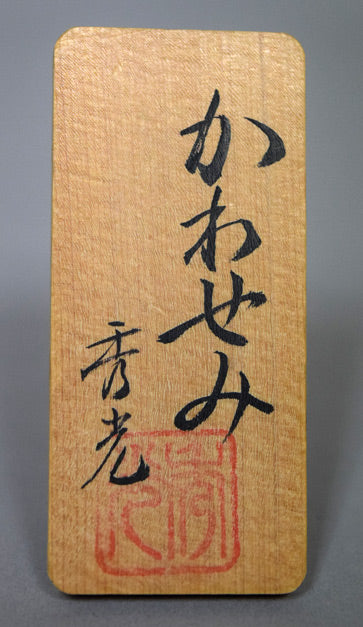 かわせみ
秀光